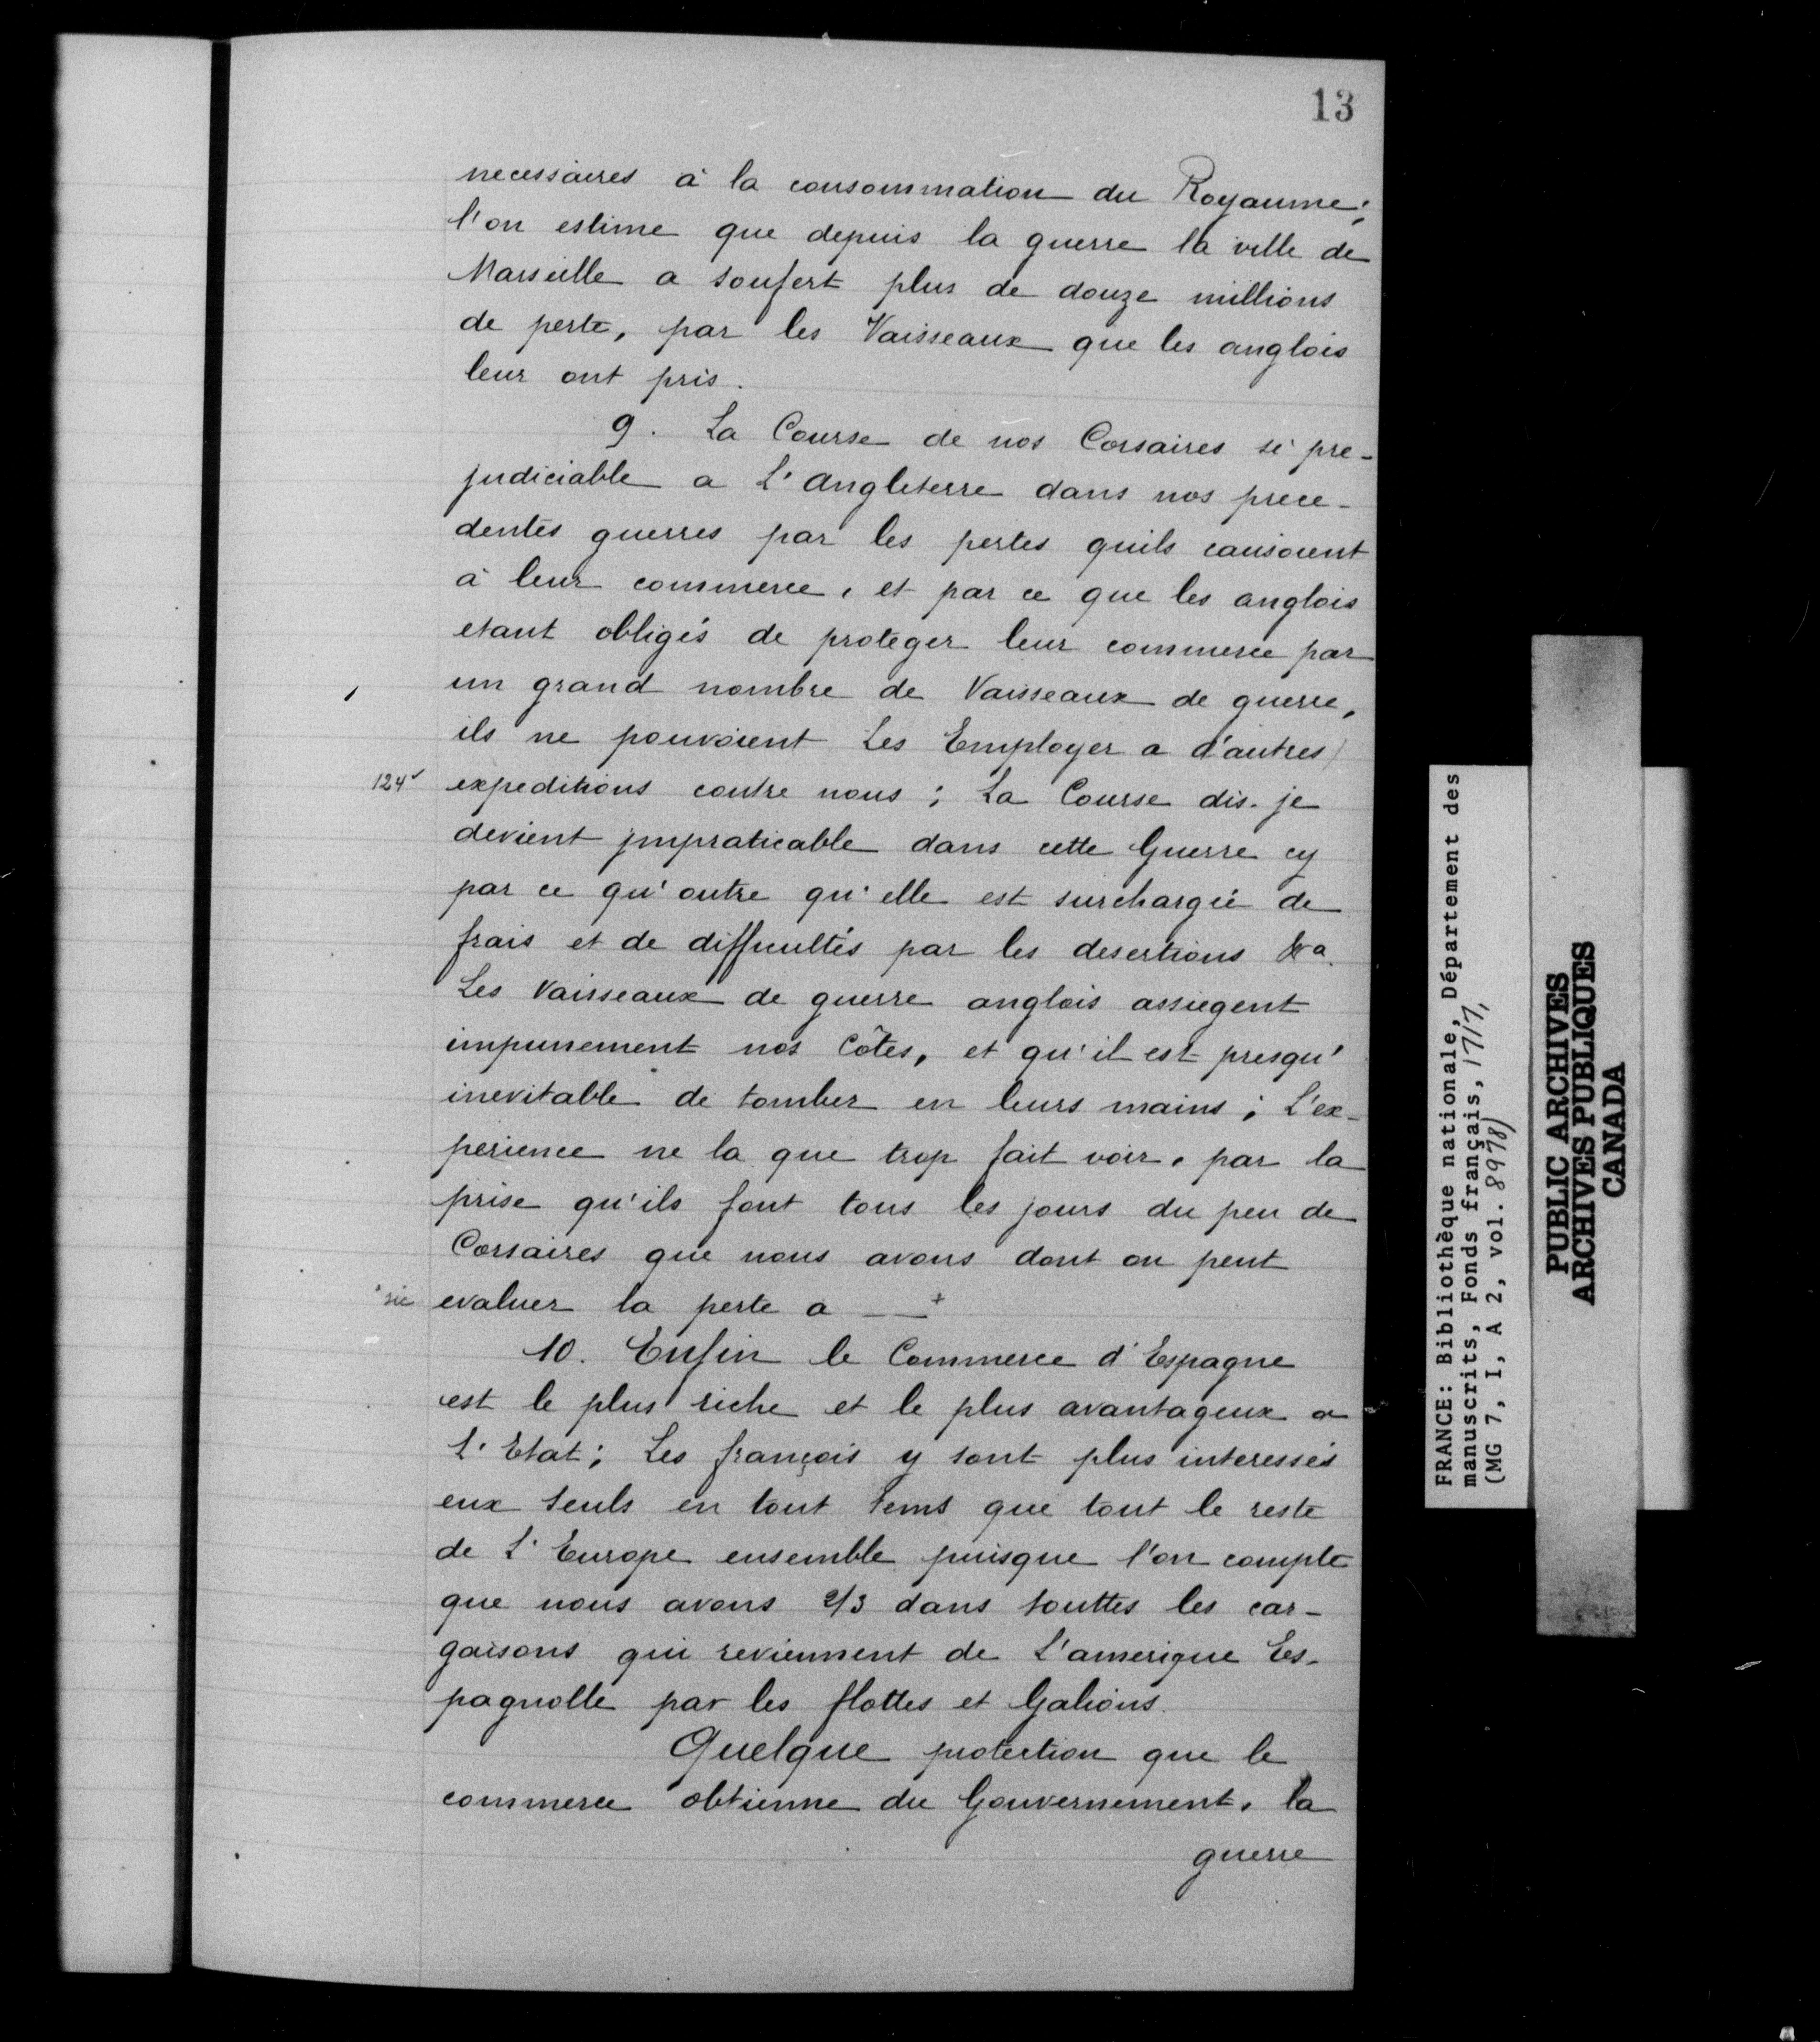 13
necessaires à la consommation du Royaume;
l'on estime que depuis la guerre la ville de
Marseille a soufert plus de douze millions
de perte, par les Vaisseaux que les anglois
leur ont pris.
9. La Course de nos Corsaires si pre-
judiciable a L'Angleterre dans nos prece-
dentes guerres par les pertes quils causoient
à leur commerce, et par ce que les anglois
etant obligés de proteger leur commerce par
un grand nombre de Vaisseaux de guerre,
ils ne pouvoient Les Employer a d'autres
124v expeditions contre nous; La Course dis-je
devient jmpraticable dans cette Guerre cy
par ce qu'outre qu'elle est surchargée de
frais et de difficultés par les desertions &a.
Les Vaisseaux de guerre anglois assiegent
impunement nos Côtes, et qu'il est presqu'
inevitable de tomber en leurs mains; L'ex-
perience ne la que trop fait voir, par la
prise qu'ils font tous les jours du peu de
Corsaires que nous avons dont on peut
+sic evaluer la perte a — +
10. Enfin le Commerce d'Espagne
est le plus riche et le plus avantageux a
L'Etat; Les françois y sont plus interessés
eux seuls en tout tems que tout le reste
de L'Europe ensemble puisque l'on compte
que nous avons 2/3 dans touttes les car-
gaisons qui reviennent de L'amerique Es-
pagnolle par les flottes et Galions.
Quelque protection que le
commerce obtienne du Gouvernement, la
guerre
FRANCE: Bibliothèque nationale, Département des
manuscrits, Fonds français, 1717,
(MG 7, I, A 2, vol. 8978)
PUBLIC ARCHIVES
ARCHIVES PUBLIQUES
CANADA